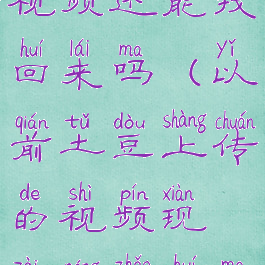 视频还能找
huí lái ma yǐ
回来吗（以
qián tǔ dòu shàng chuán
前土豆上传
de shì pín xiàn
的视频现